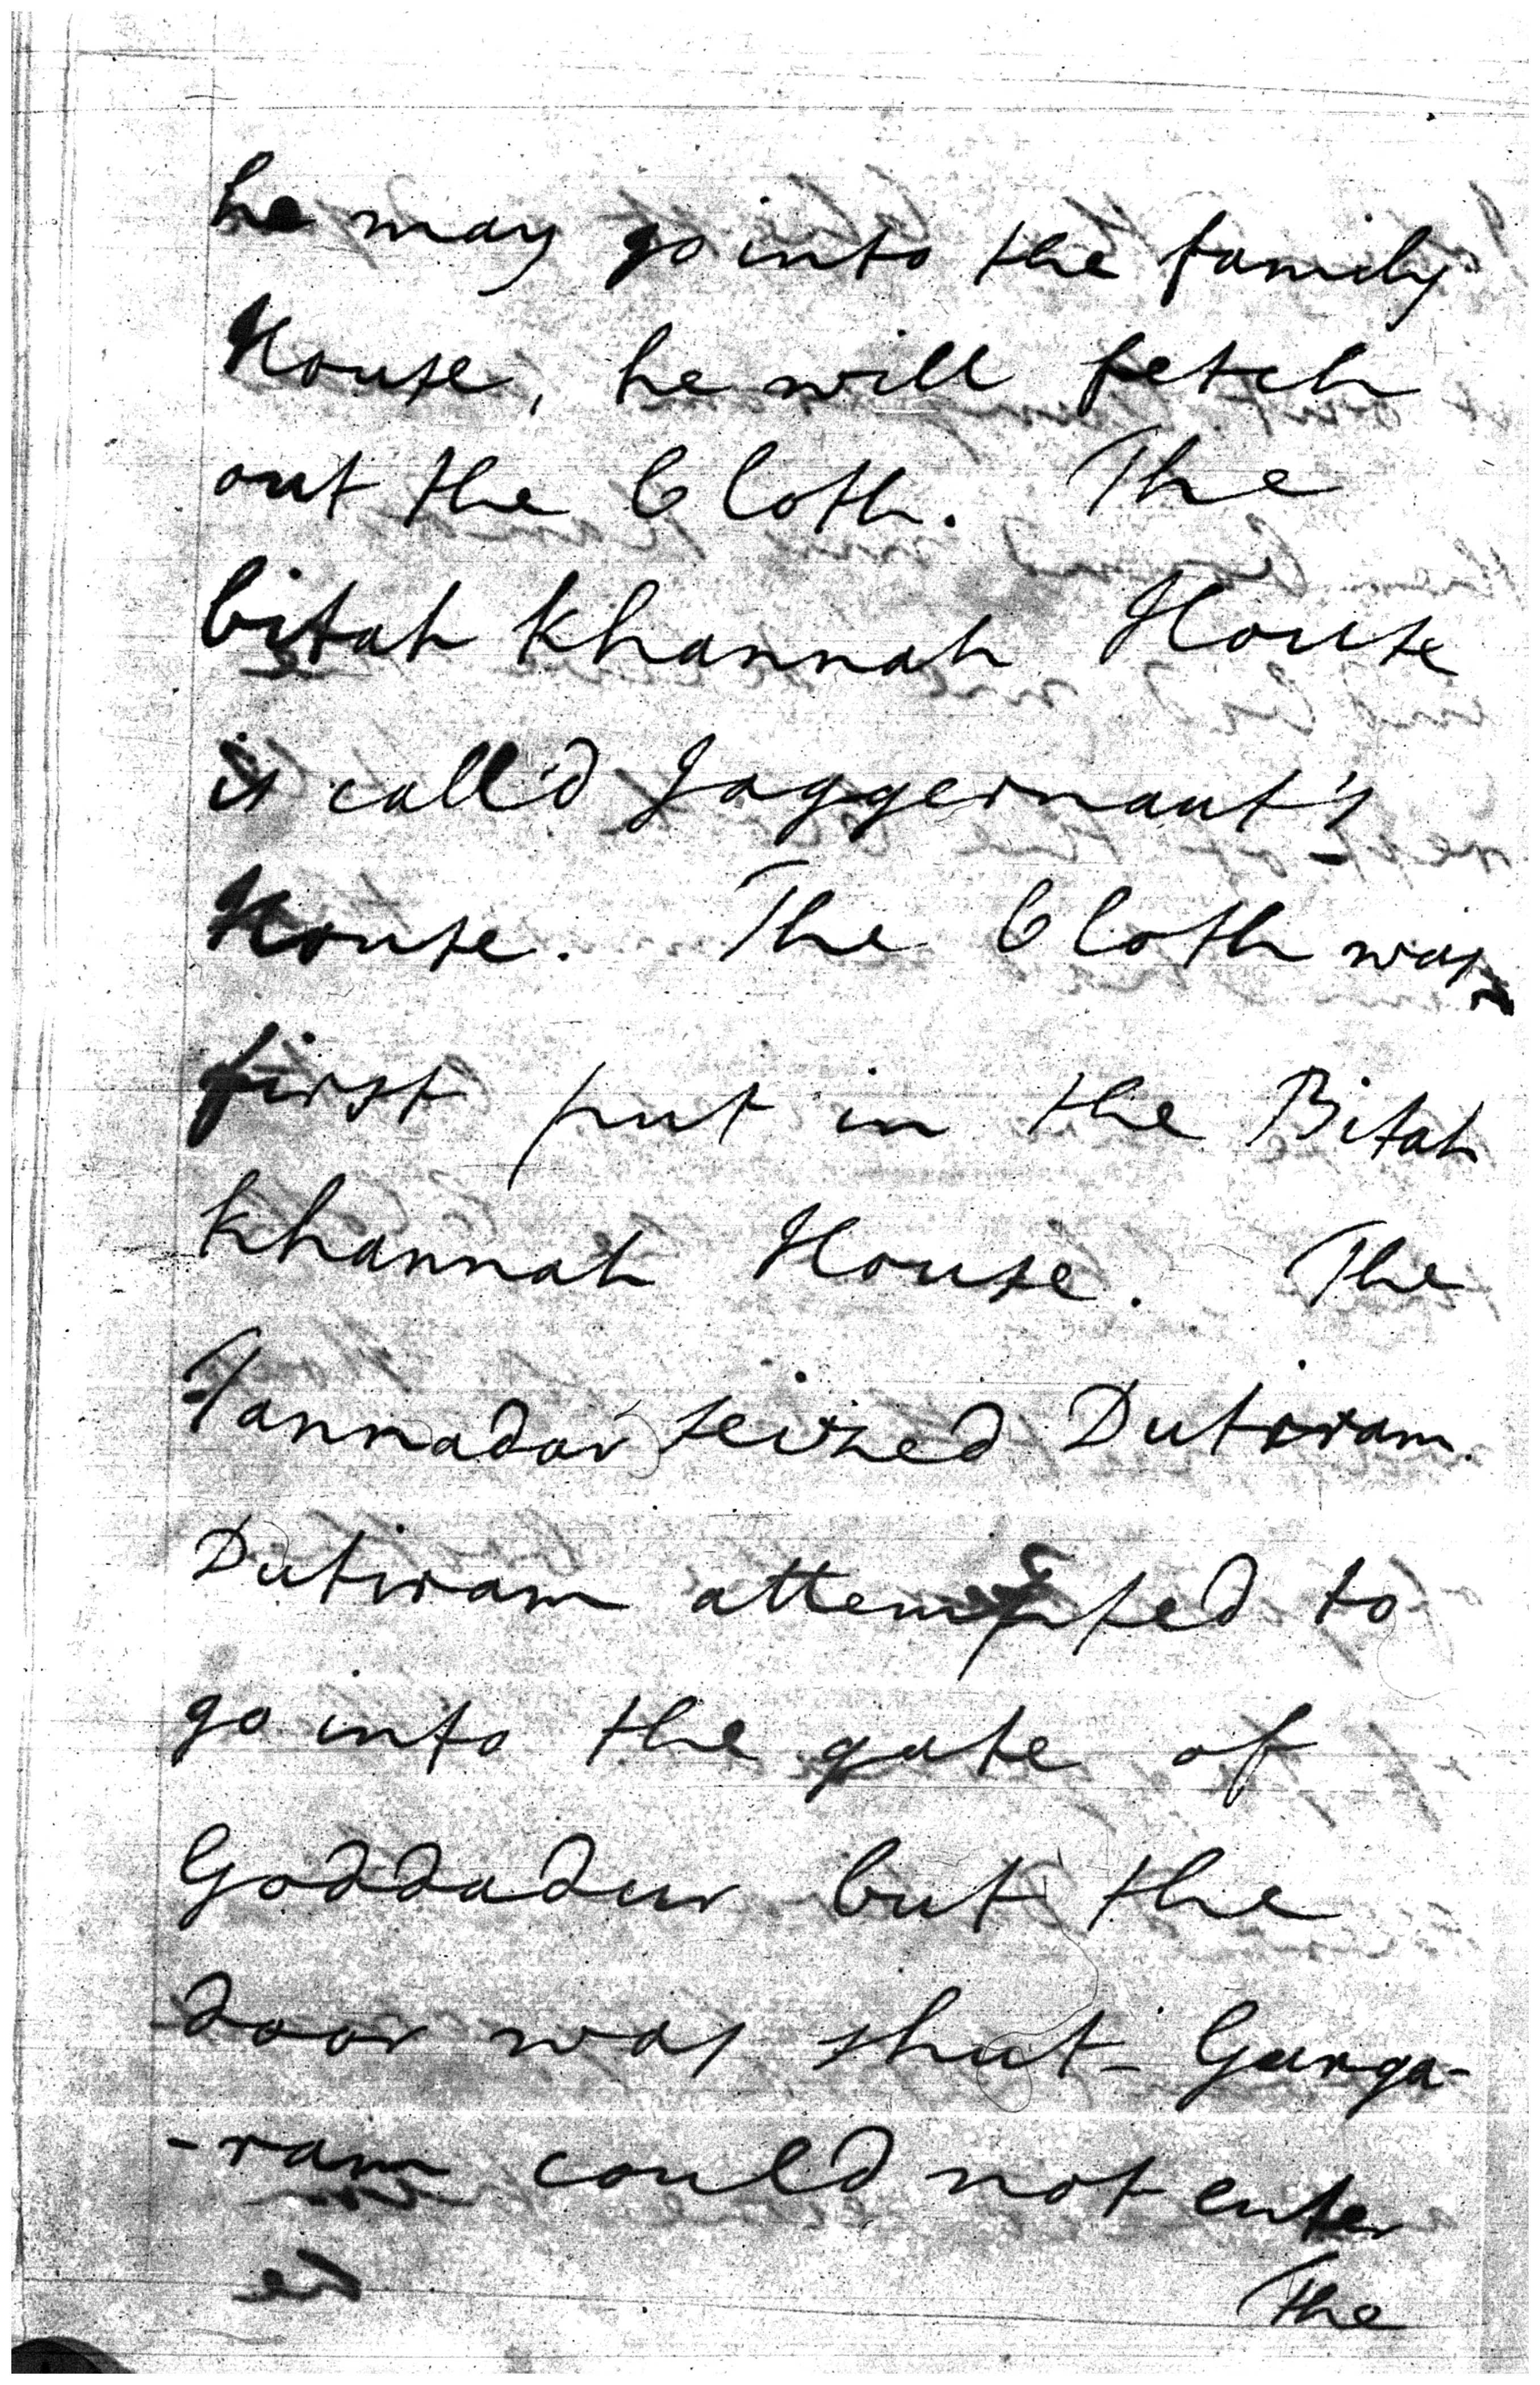 he may go into the family
House, he will fetch
out the Cloth. The
bitah Khannah House
is call'd Jaggernaut's
House. The Cloth was
first put in the Bitah
Khannah House. The
Tannadar seized Dutiram.
Dutiram attempted to
go into the gate of
Goddadur but the
door was shut- Gunga-
-ram could not enter
The